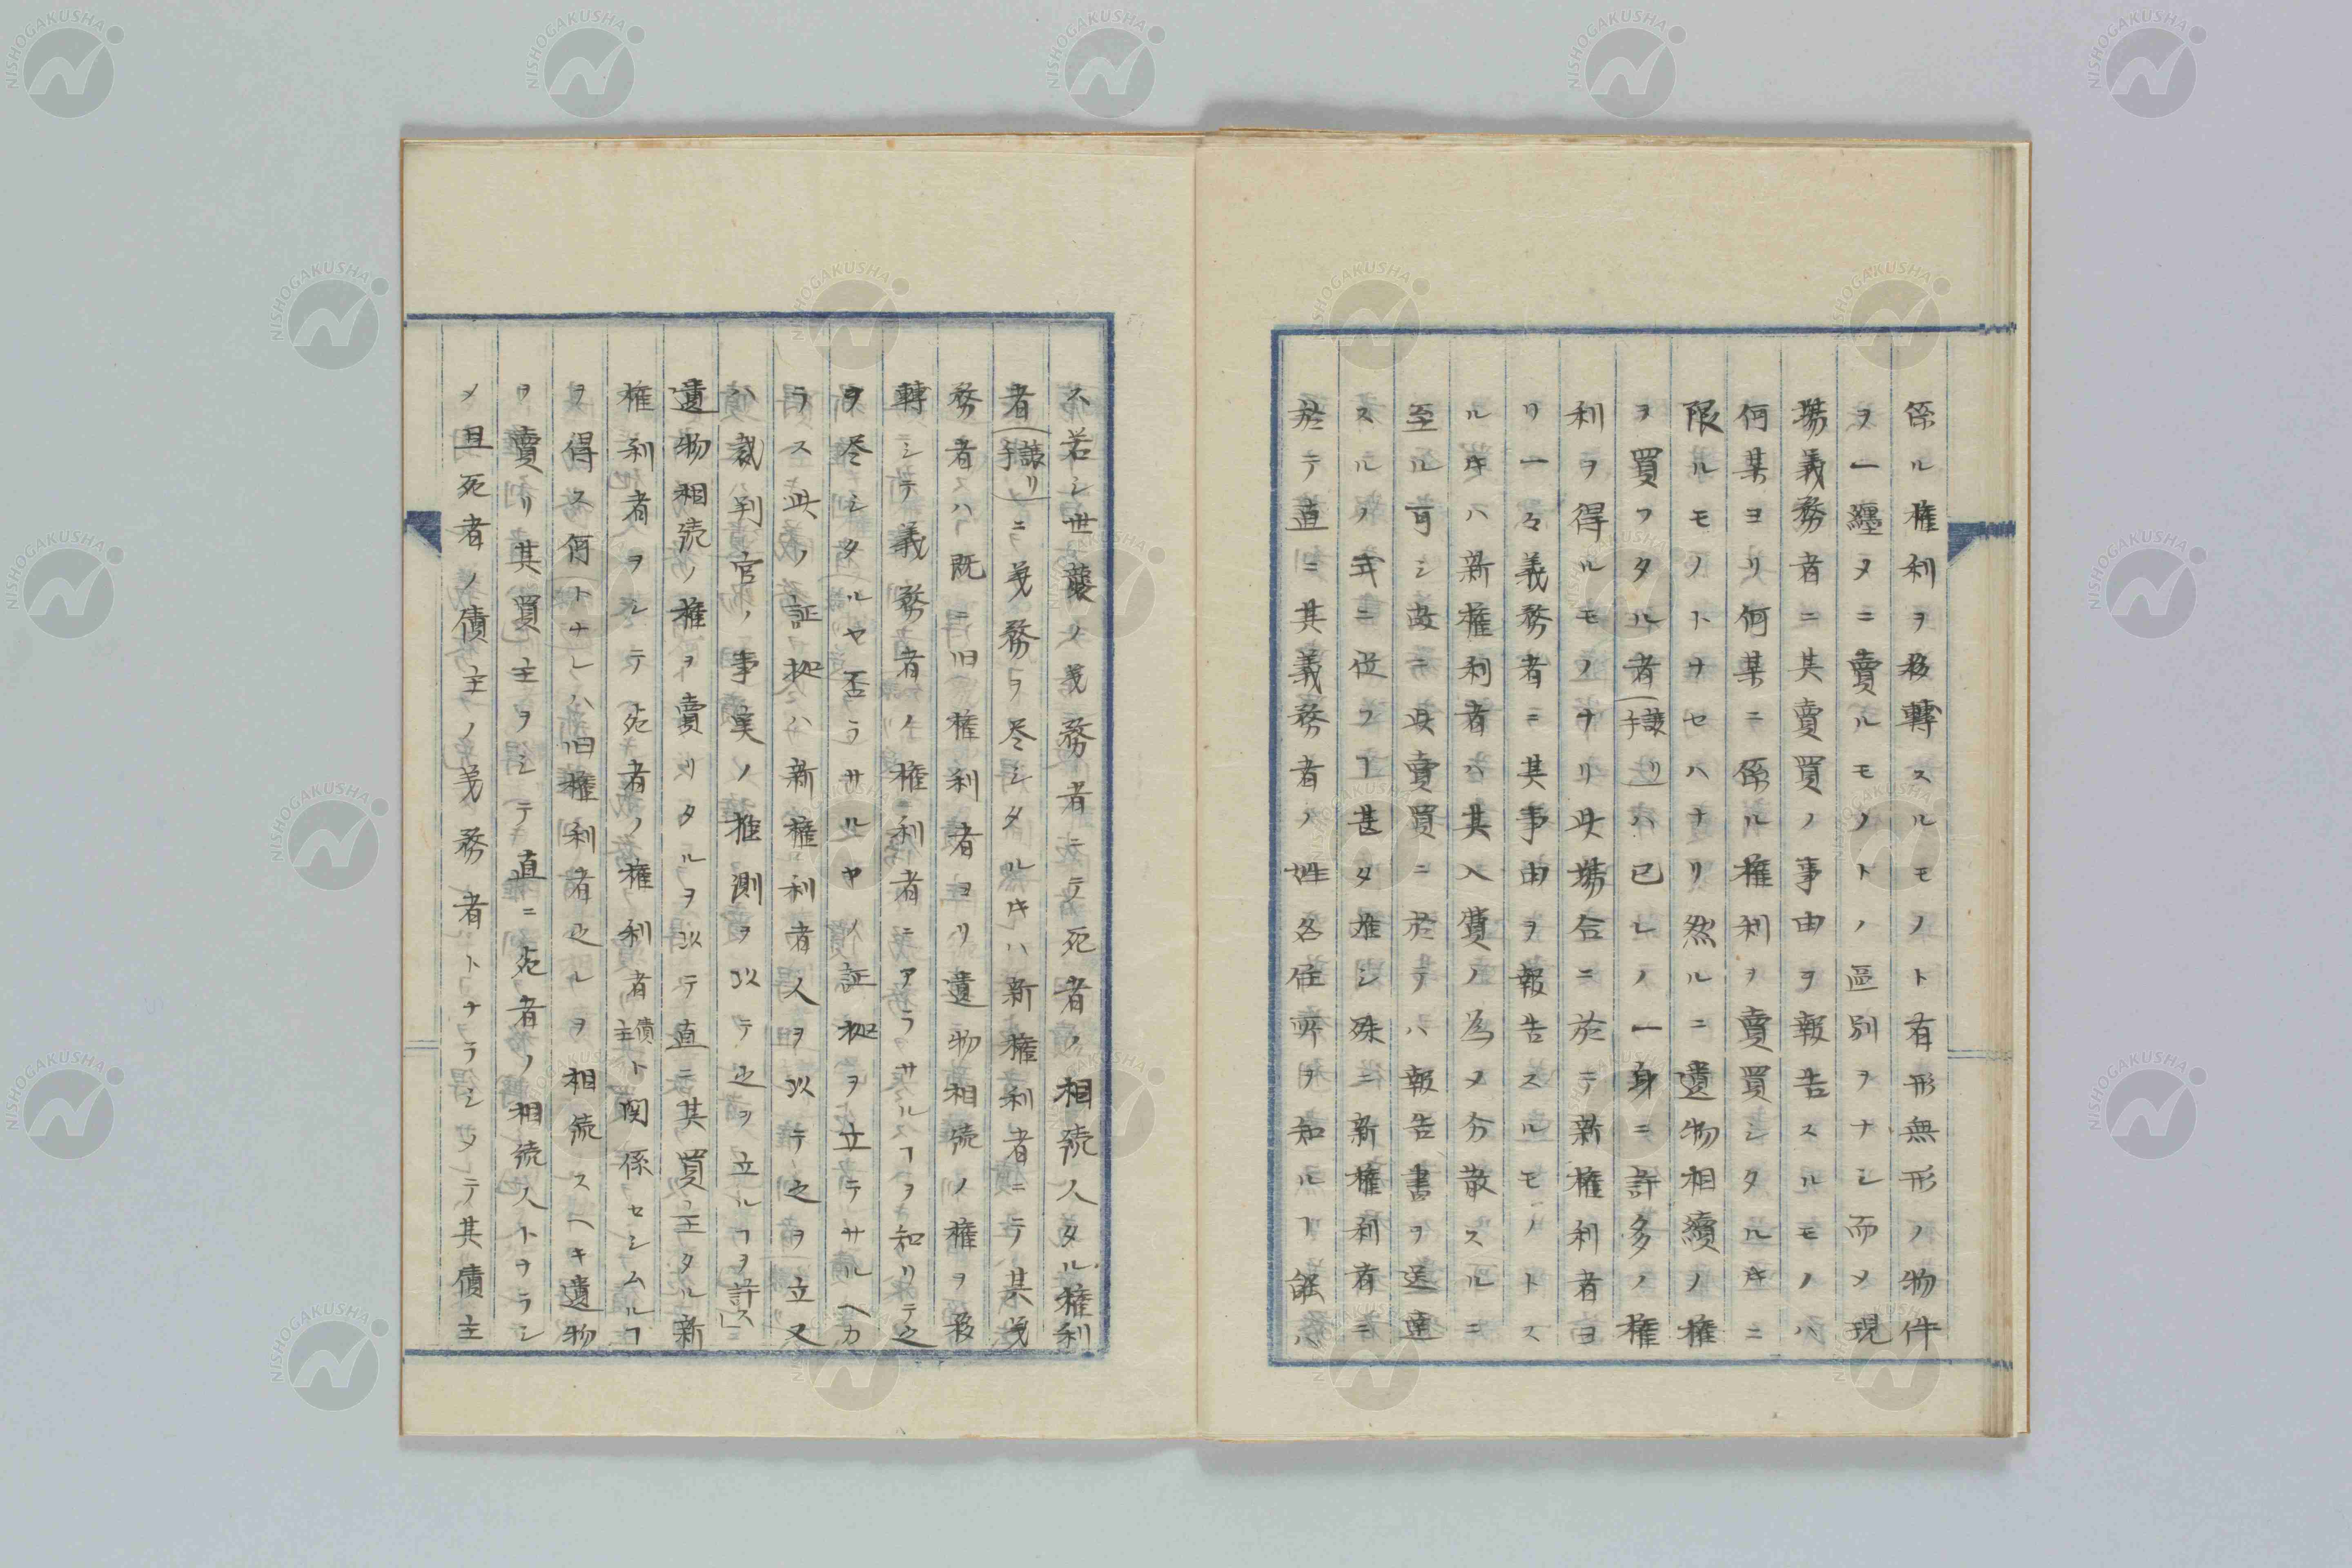 係ル権利ヲ移轉スルモノト有形無形ノ物件
ヲ一纏メニ賣ルモノトノ區別ヲナシ而メ現
塲義務者ニ其賣買ノ事由ヲ報告スルモノハ
何某ヨリ何某ニ係ル権利ヲ賣買シタルキニ
限ルモノトナセハナリ然ルニ遺物相續ノ権
ヲ買フタル者(譲リ手)ハ已レノ一身ニ許多ノ権
利ヲ得ルモノナリ此塲合ニ於テ新権利者ヨ
リ一々義務者ニ其事由ヲ報告スルモノトス
ルキハ新権利者ハ其入費ノ為メ分散スルニ
至ル可シ故ニ此賣買ニ於テハ報告書ヲ送達
スルノ式ニ從フヿ甚タ難シ殊ニ新権利者ニ
於テ直ニ其義務者ノ姓名住所ヲ知ルヿ能ハ
ス若シ世襲ノ義務者ニテ死者ノ相続人タル権利
者(譲リ手)ニ義務ヲ尽シタルキハ新権利者ニテ其義
務者ハ既ニ旧権利者ヨリ遺物相続ノ権ヲ移
轉シテ義務者ノ権利者ニアラサルヿヲ知リテ之
ヲ尽シタルヤ否ラサルヤノ証拠ヲ立テサルヘカ
ラス此ノ証拠ハ新権利者人ヲ以テ之ヲ立又
ハ裁判官ノ事実ノ推測ヲ以テ之ヲ立ルヿヲ許ス
遺物相続ノ権ヲ賣リタルヲ以テ直ニ其買主タル新
権利者ヲシテ死者ノ権利者債主ト関係セシムルヿ
ヲ得ス何トナレハ旧権利者之ルヲ相続スヘキ遺物
ヲ賣リ其買主ヲシテ直ニ死者ノ相続人トヲラシ
メ且死者ノ債主ノ義務者トナラシメテ其債主